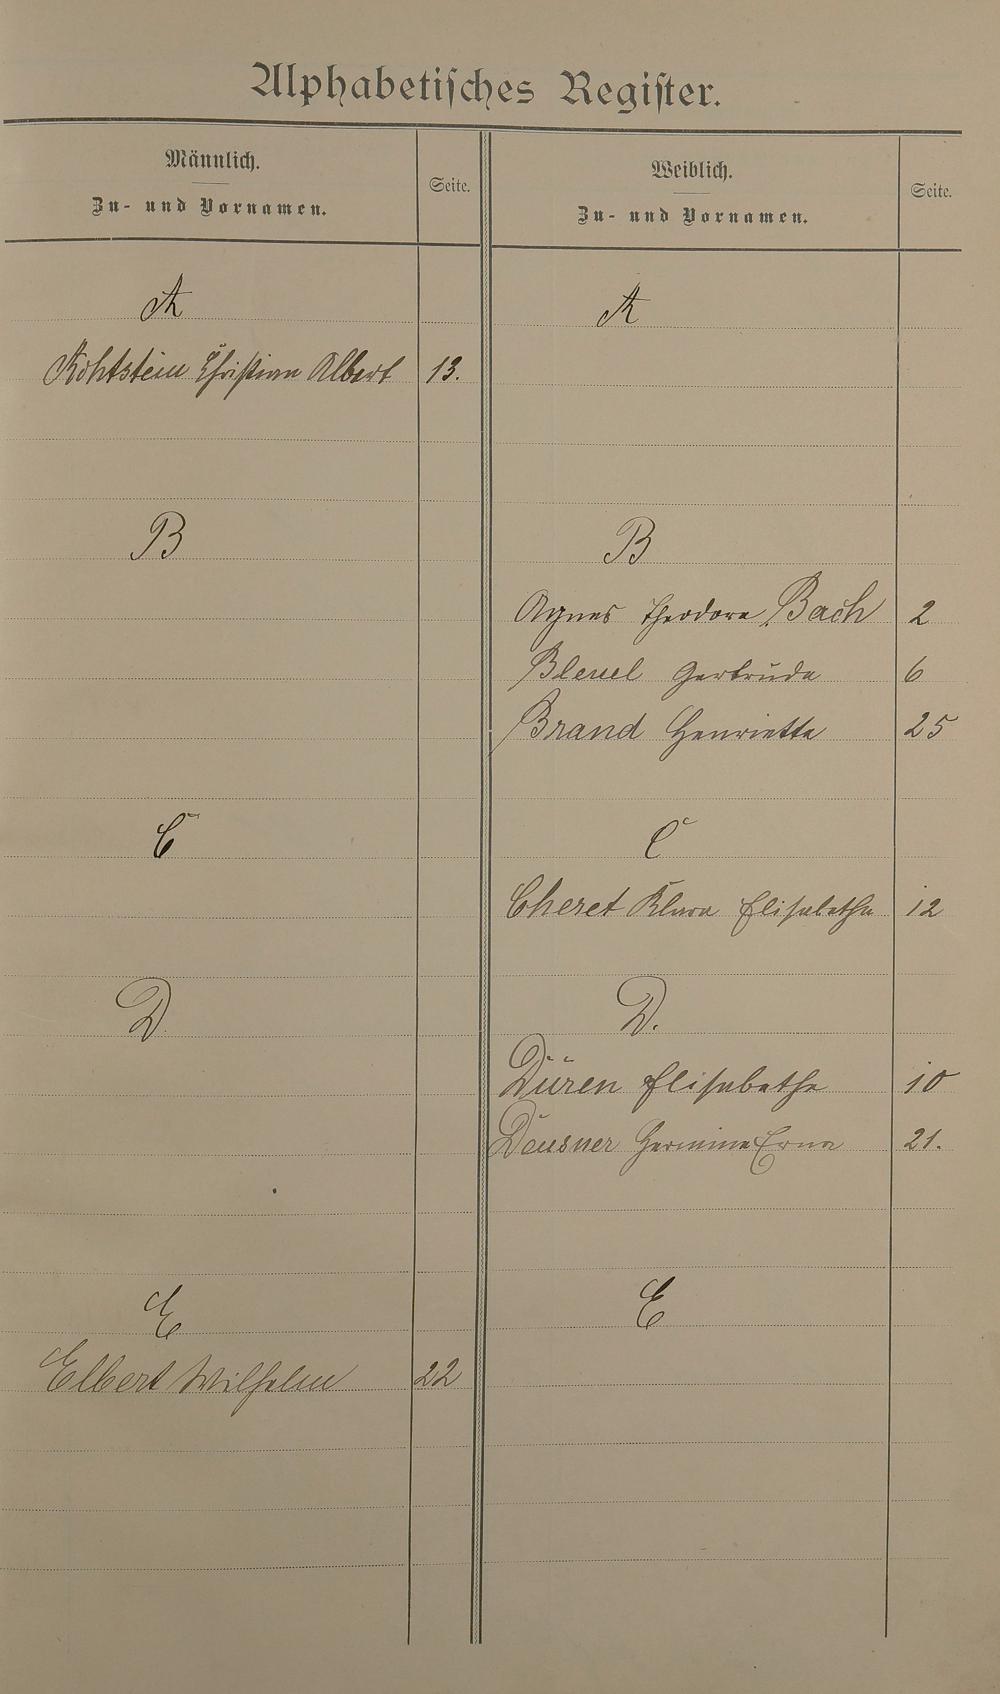 Alphabetisches Register.
Männlich.
Zu- und Vornamen.
Seite.
A
Kohtstein Christian Albert 13.
B
C
D
E
Elbert Wilhelm 22
Weiblich.
Zu- und Vornamen.
Seite.
A
B
Agnes Theodora Bach 2
Bleuel Gertrude 6
Brand Henriette 25
C
Cheret Klara Elisabetha 12
D.
Düren Elisabetha 10
Deusner Hermine Erna 21.
E